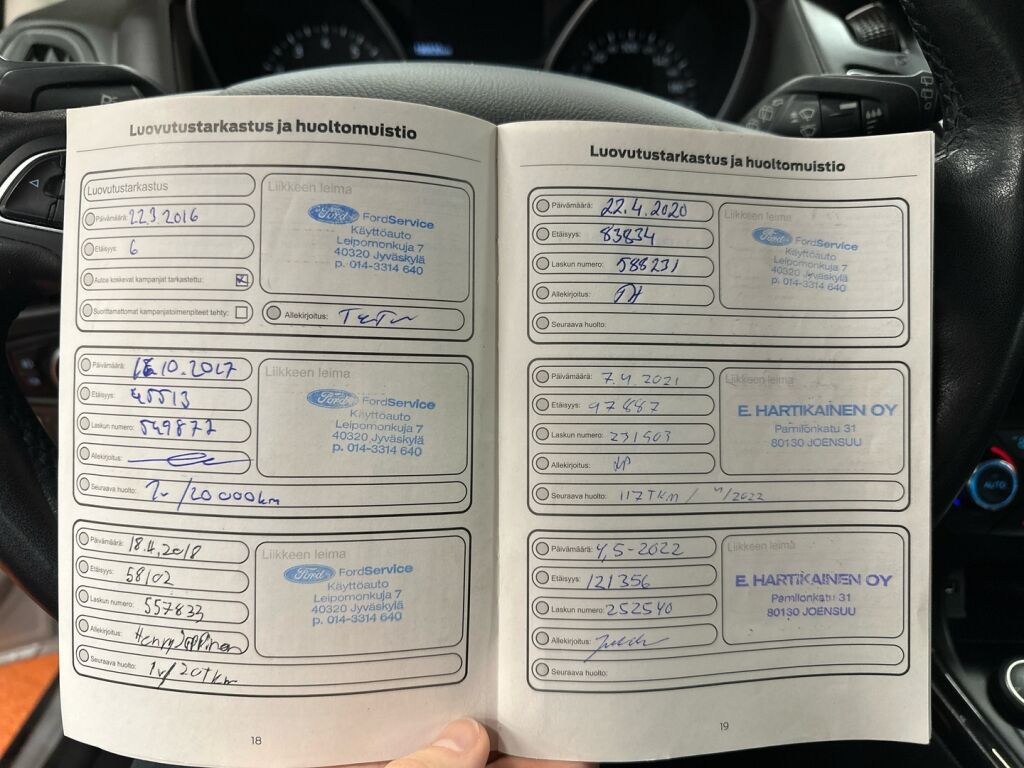 Luovutustarkastus ja huoltomuistio
Luovutustarkastus
Päivämäärä: 22.3 2016
Etäisyys: 6
Autoa koskevat kampanjat tarkastettu:
Suorittamattomat kampanjatoimenpiteet tehty:
Liikkeen leima
Ford FordService
Käyttöauto
Leipomonkuja 7
40320 Jyväskylä
p. 014-3314 640
Allekirjoitus:
Päivämäärä: 10.2017
Etäisyys: 45513
Laskun numero: 549877
Allekirjoitus:
Seuraava huolto: 1v/20 000km
Liikkeen leima
Ford FordService
Käyttöauto
Leipomonkuja 7
40320 Jyväskylä
p. 014-3314 640
Päivämäärä: 18.4.2018
Etäisyys: 58102
Laskun numero: 557833
Allekirjoitus: Henry
Seuraava huolto: 1v/20Tkm
Liikkeen leima
Ford FordService
Käyttöauto
Leipomonkuja 7
40320 Jyväskylä
p. 014-3314 640
18
Luovutustarkastus ja huoltomuistio
Päivämäärä: 22.4.2020
Etäisyys: 83834
Laskun numero: 588231
Allekirjoitus:
Seuraava huolto:
Liikkeen leima
Ford FordService
Käyttöauto
Leipomonkuja 7
40320 Jyväskylä
p. 014-3314 640
Päivämäärä: 7.4.2021
Etäisyys: 97887
Laskun numero: 231903
Allekirjoitus:
Seuraava huolto: 117TKm / 4/2022
Liikkeen leima
E. HARTIKAINEN OY
Pamilonkatu 31
80130 JOENSUU
Päivämäärä: 4,5-2022
Etäisyys: 121356
Laskun numero: 252540
Allekirjoitus:
Seuraava huolto:
Liikkeen leima
E. HARTIKAINEN OY
Pamilonkatu 31
80130 JOENSUU
19
AUTO